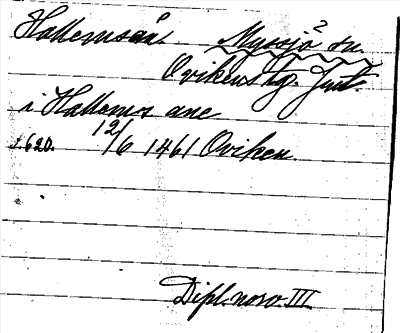 Hallemsån. Myssjö² sn.
Ovikens tg. Jmt.
i Hallems ane
s. 620. 12/6 1461 Oviken
Dipl. norv. III